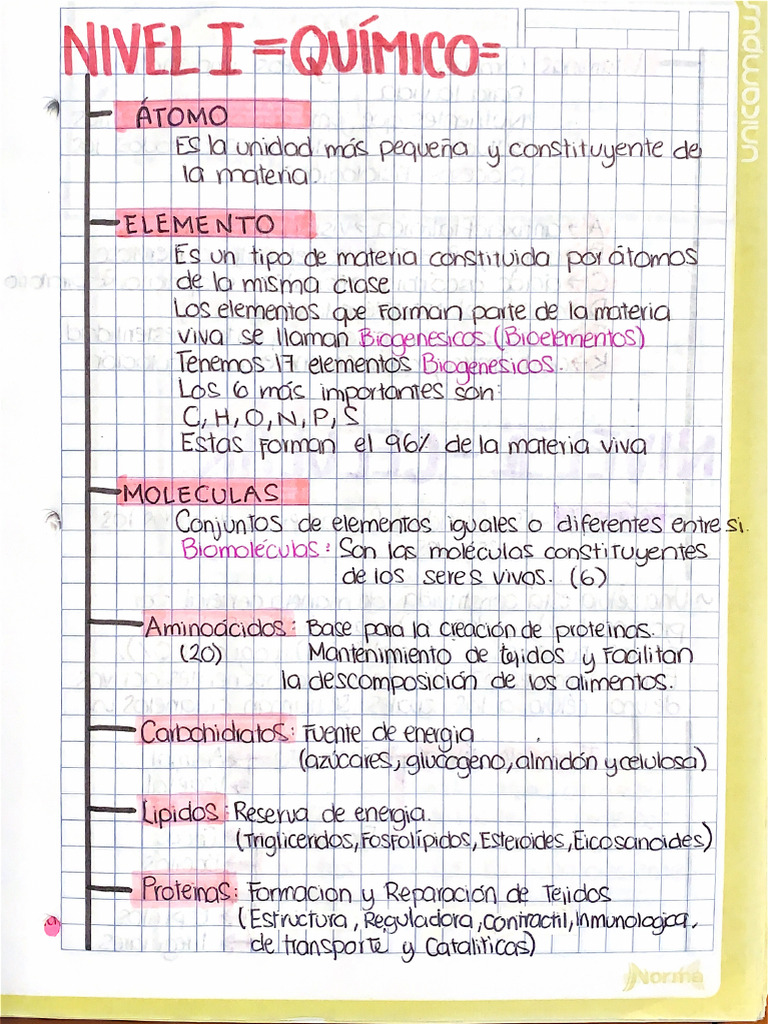 NIVEL I = QUÍMICO =
unicampus
ÁTOMO
Es la unidad más pequeña y constituyente de
la materia.
ELEMENTO
Es un tipo de materia constituida por átomos
de la misma clase
Los elementos que forman parte de la materia
viva se llaman Biogenesicos (Bioelementos)
Tenemos 17 elementos Biogenesicos.
Los 6 más importantes son:
C, H, O, N, P, S
Estas forman el 96% de la materia viva
MOLECULAS
Conjuntos de elementos iguales o diferentes entre si.
Biomoléculas: Son las moléculas constituyentes
de los seres vivos. (6)
Aminoácidos: Base para la creación de proteinas.
(20) Mantenimiento de tejidos y Facilitan
la descomposición de los alimentos.
Carbohidratos: Fuente de energia
(azúcares, glucógeno, almidón y celulosa)
Lipidos: Reserva de energia.
(Trigliceridos, Fosfolípidos, Esteroides, Eicosanoides)
Proteinas: Formacion y Reparación de Tejidos
(Estructura, Reguladora, Contractil, Inmunologica,
de transporte y Cataliticas)
Norma